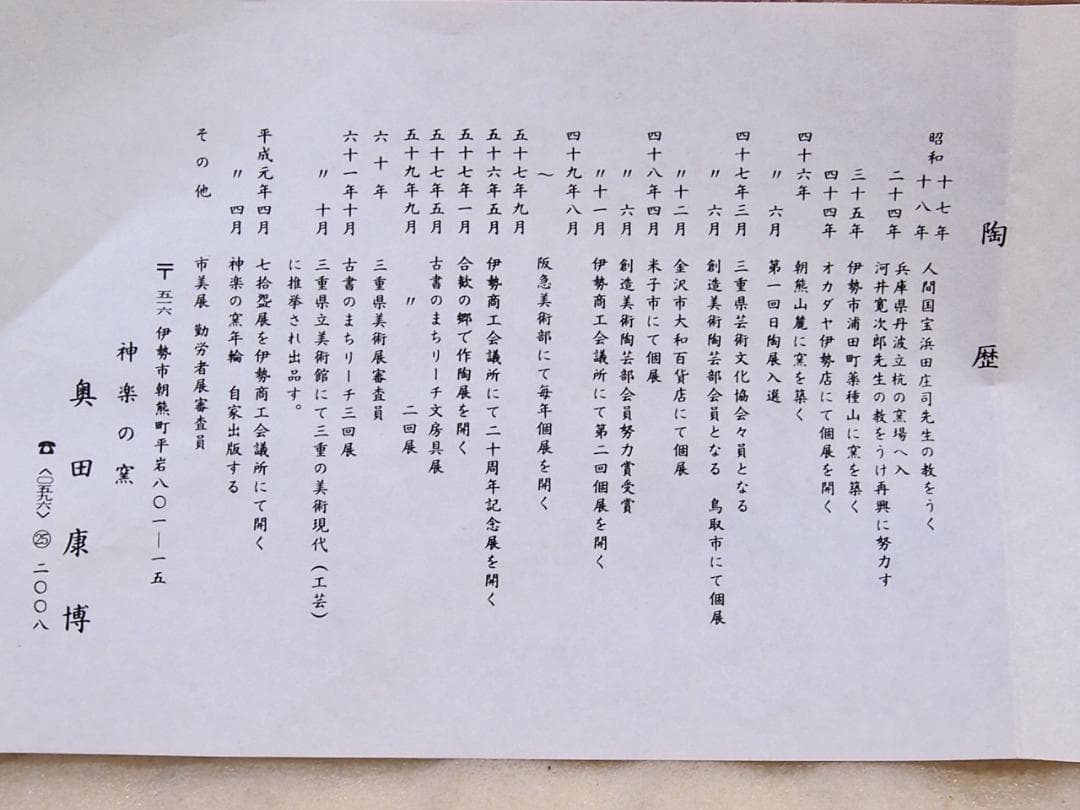 陶歴
昭和十七年 人間国宝浜田庄司先生の教をうく
十八年 兵庫県丹波立杭の窯場へ入
二十四年 河井寛次郎先生の教をうけ再興に努力す
三十五年 伊勢市浦田町薬種山に窯を築く
四十四年 オカダヤ伊勢店にて個展を開く
四十六年 朝熊山麓に窯を築く
〃 六月 第一回日陶展入選
四十七年三月 三重県芸術文化協会々員となる
〃 六月 創造美術陶芸部会員となる 鳥取市にて個展
〃十二月 金沢市大和百貨店にて個展
四十八年四月 米子市にて個展
〃 六月 創造美術陶芸部会員努力賞受賞
〃十一月 伊勢商工会議所にて第二回個展を開く
四十九年八月
〜 阪急美術部にて毎年個展を開く
五十七年九月
五十六年五月 伊勢商工会議所にて二十周年記念展を開く
五十七年一月 合歓の郷で作陶展を開く
五十七年五月 古書のまちリーチ文房具展
五十九年九月 〃 二回展
六十年 三重県美術展審査員
六十一年十月 古書のまちリーチ三回展
〃 十月 三重県立美術館にて三重の美術現代(工芸)
に推挙され出品す。
平成元年四月 七拾盌展を伊勢商工会議所にて開く
〃 四月 神楽の窯年輪 自家出版する
その他 市美展 勤労者展審査員
〒五一六 伊勢市朝熊町平岩八〇一―一五
神楽の窯
奥田康博
☎〈〇五九六〉㉕二〇〇八